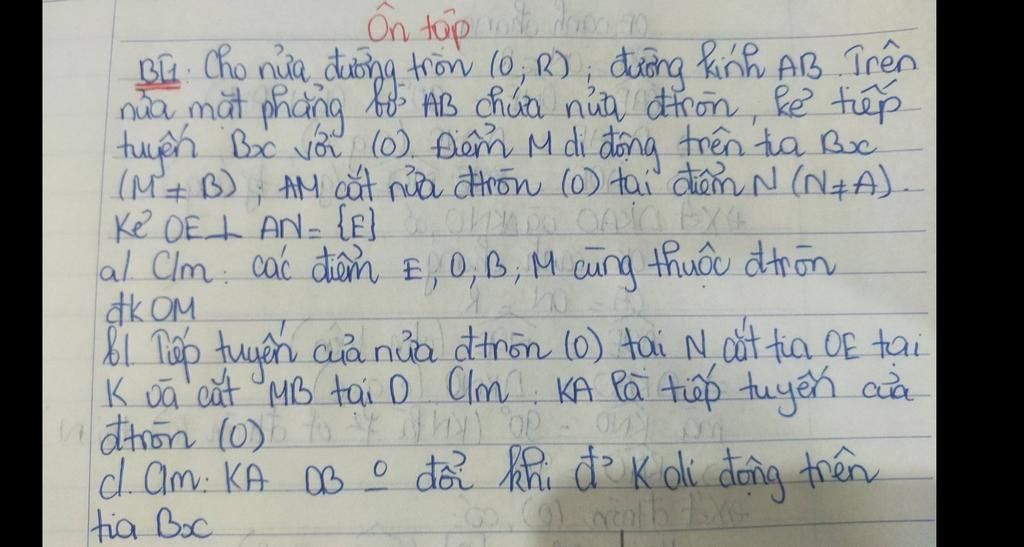 Ôn tập
B1. Cho nửa đường tròn (O, R), đường kính AB. Trên
nửa mặt phẳng bờ AB chứa nửa đtròn, kẻ tiếp
tuyến Bx với (O). Điểm M di động trên tia Bx
(M ≠ B), AM cắt nửa đtròn (O) tại điểm N (N ≠ A).
Kẻ OE ⊥ AN = {E}
a/. C/m: các điểm E, O, B, M cùng thuộc đtròn
đk OM
b/. Tiếp tuyến của nửa đtròn (O) tại N cắt tia OE tại
K và cắt MB tại D. C/m: KA là tiếp tuyến của
đtròn (O)
c/. C/m: KA. DB o đổi khi đ' K di động trên
tia Bx